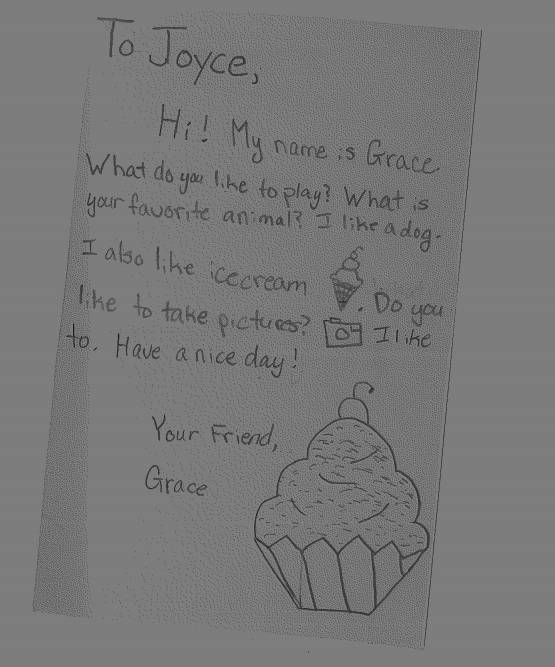 To Joyce,
Hi! My name is Grace.
What do you like to play? What is
your favorite animal? I like a dog.
I also like icecream . Do you
like to take pictures? I like
to. Have a nice day!
Your Friend,
Grace